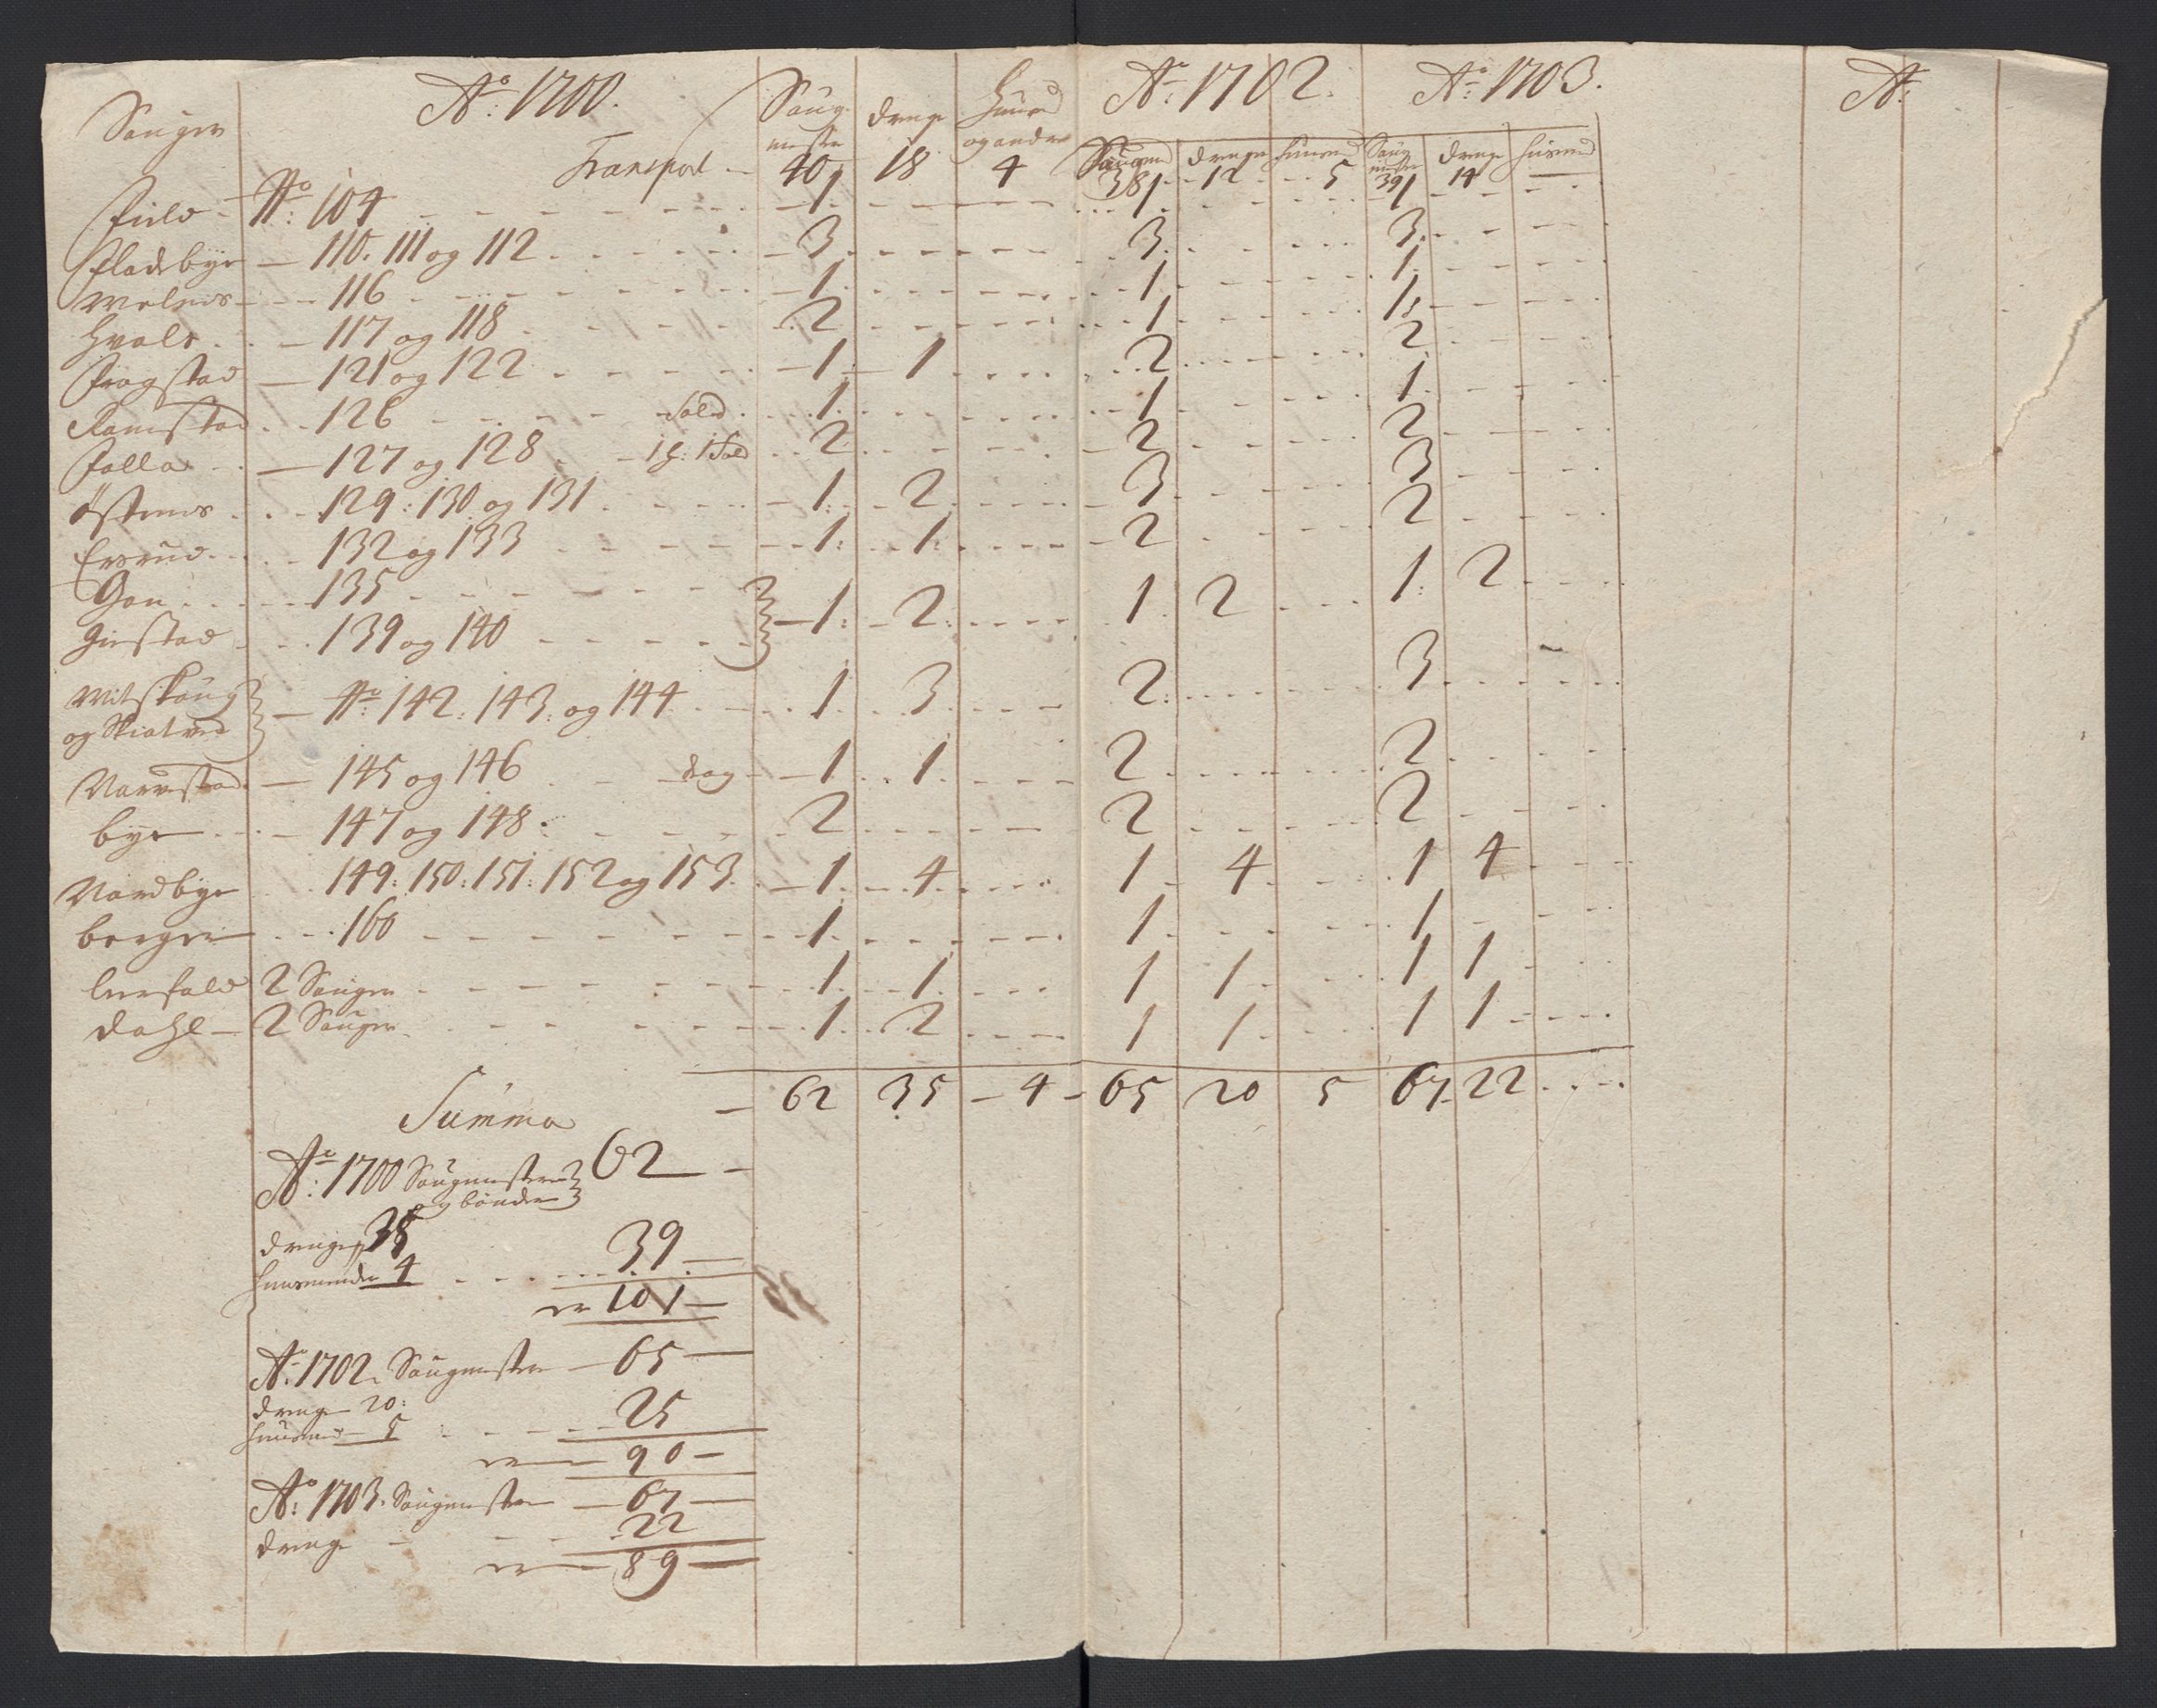 Sauger Ao: 1700. Saug- drenge huusmd Ao: 1702. Ao: 1703. Ao:
mestre og andre Saugmd drenge huusmd Saug mestre drenge husmd
Transport — 40 18 4 38 12 5 39 14 —
Field — No: 104 1 1 1
Fladebye — 110. 111 og 112 3 3 3
116 1 1 1
Hvals 117 og 118 2 1 1
Frogstad — 121 og 122 1 1 2 2
Ramstad 126 Sold 1 1 1
Falla — 127 og 128 1 S: 1 Sold 2 2 2
Østenes 129: 130 og 131 1: 2 3 3
132 og 133 1: 1: 2 2
135
139 og 140 1: 2 1 2 1: 2
Mitskoug
og Skiatved — No: 142: 143: og 144 1 3 2: 3
Narvestad — 145 og 146 dog 1 1 2 2
bye — 147 og 148 2 2 2
Nordbye 149: 150: 151: 152 og 153. 1 4 1 4 1 4
bergen 160 1 1 1
leerfald 2 Sauger 1 1 1 1 1 1
dahl — 2 Sauger 1 2 1 1 1 1
Summa — 62 35 — 4 — 65 20 5 67 22
Ao: 1700 Saugmestre
og bønder 62 —
drenge 35
huusmænd 4 39 —
er 101 —
Ao: 1702. Saugmestre — 65 —
drenge 20:
huusmænd — 5 25
er — 90 —
Ao: 1703. Saugmestre — 67 —
drenge — 22
er — 89 —